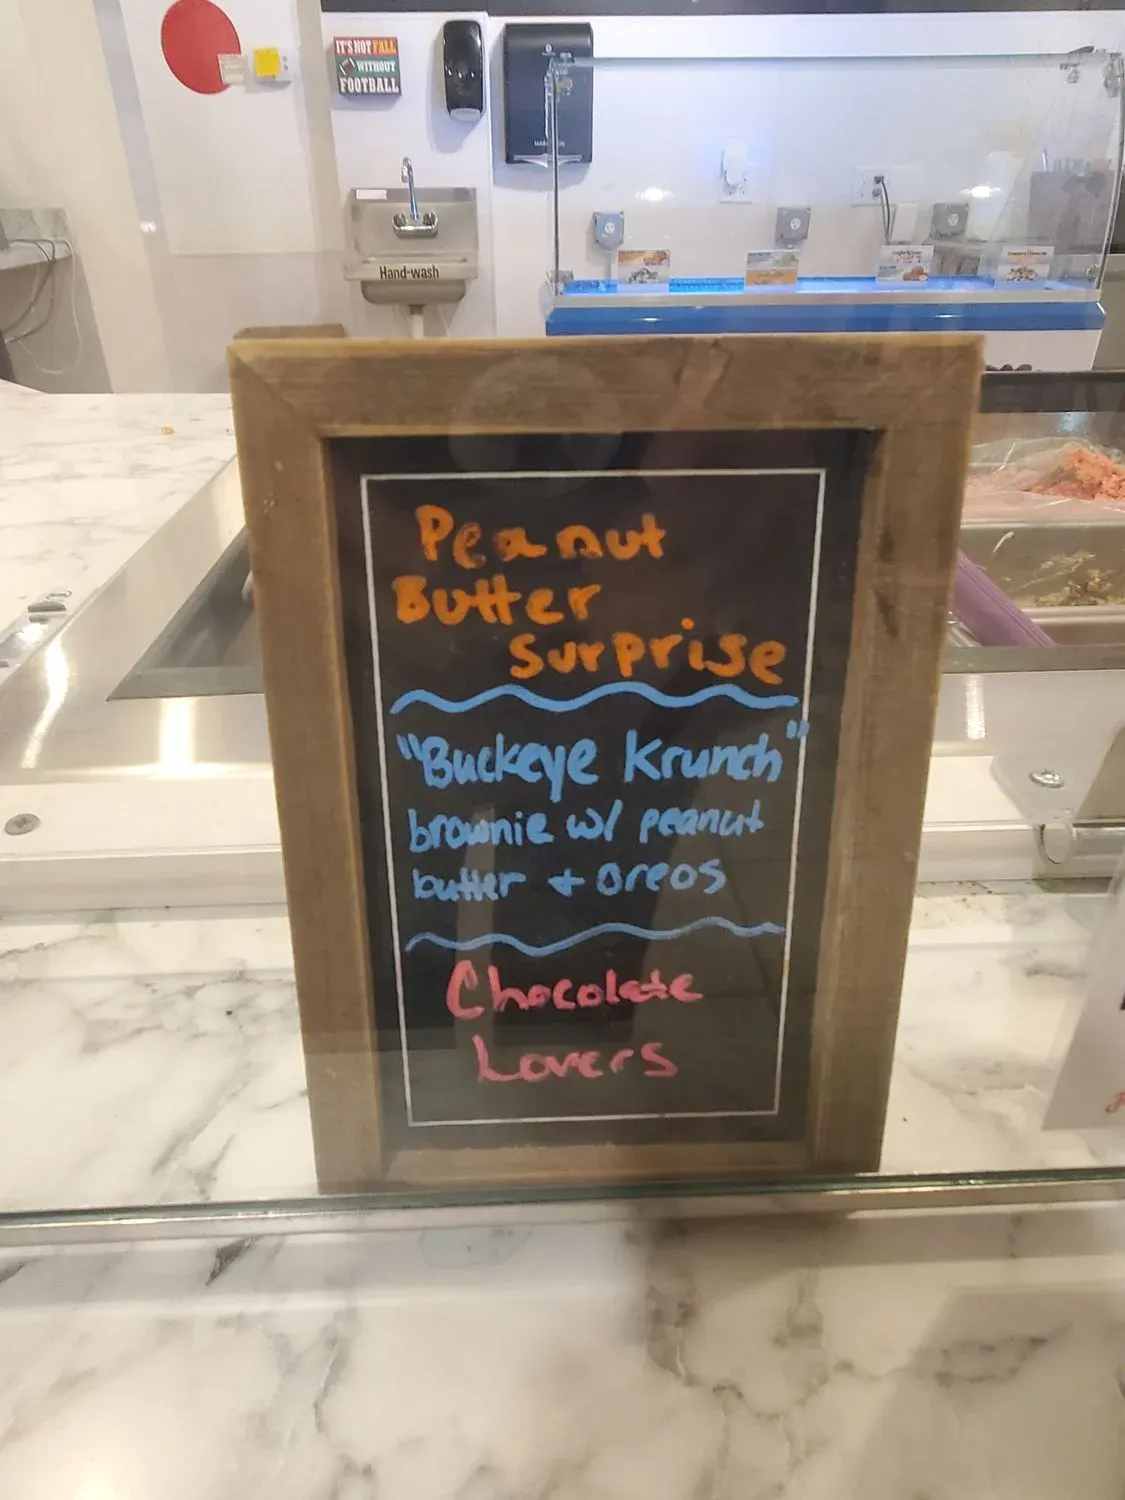 IT'S NOT FALL
WITHOUT
FOOTBALL
Hand-wash
Peanut
Butter
Surprise
"Buckeye Krunch"
brownie w/ peanut
butter + oreos
Chocolate
Lovers